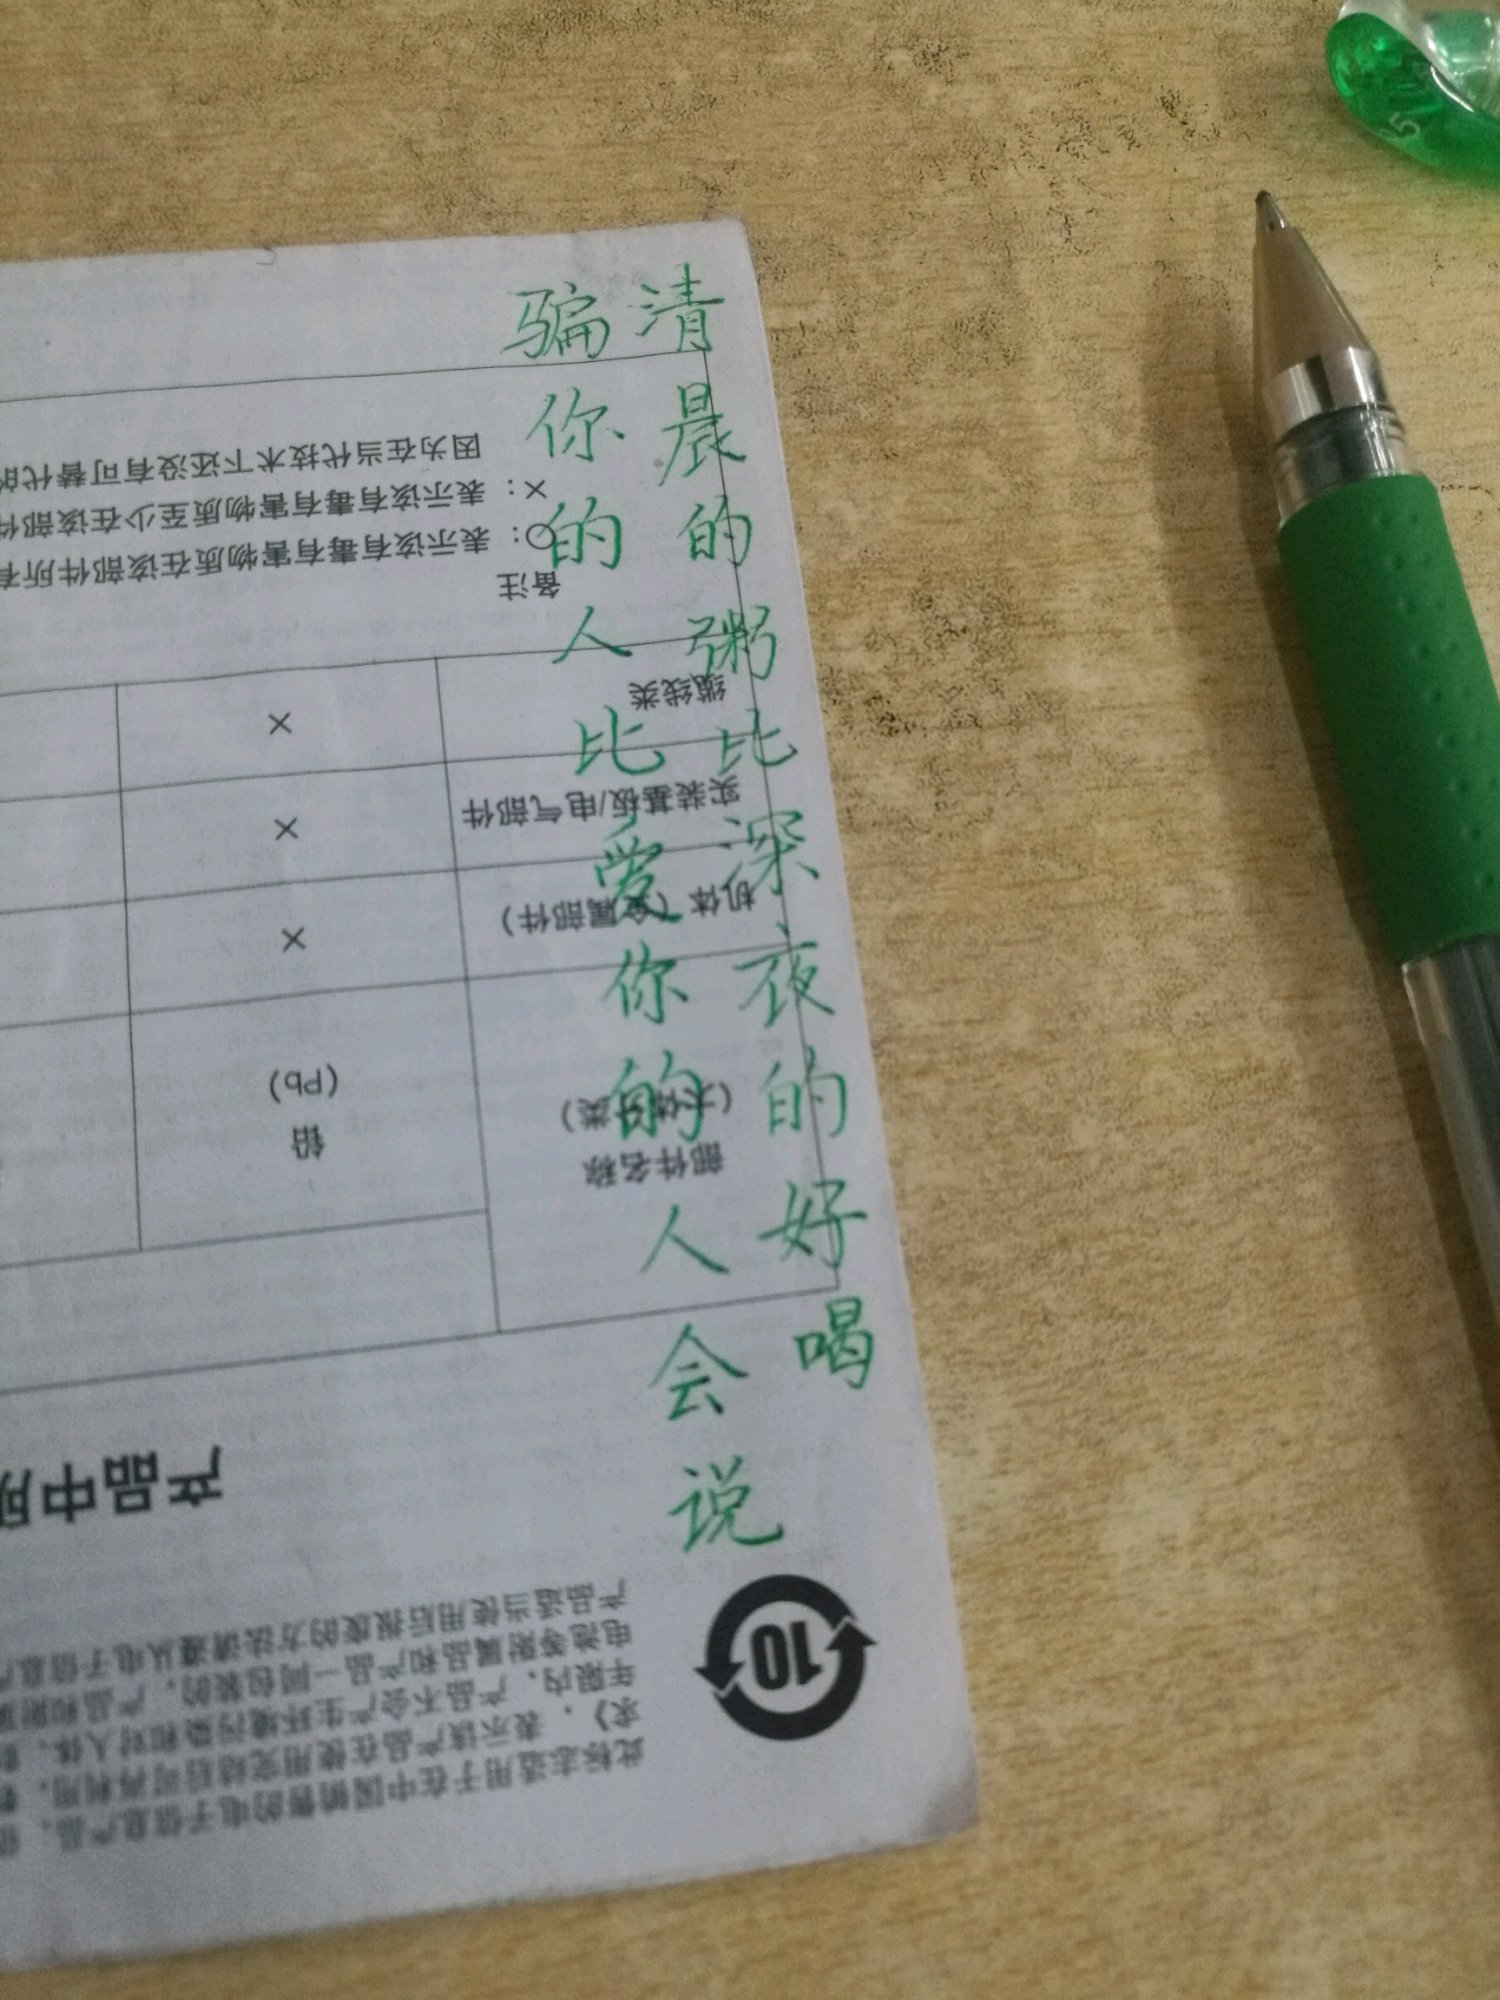 清晨的粥比深夜的好喝
骗你的人比爱你的人会说
此标志适用于在中国销售的电子信息产品，
求），表示该产品在使用完结后可再利用，
年限内，产品不会产生环境污染和对人体、
电池等附属品和产品一同包装的，产品和附属
产品适当使用后报废的方法请遵从电子信息
产品中
部件名称
铅
(Pb)
机体（金属部件）
×
实装基板/电气部件
×
缆线类
×
备注
○：表示该有毒有害物质在该部件所有
×：表示该有毒有害物质至少在该部件
因为在当代技术下还没有可替代的
10
5